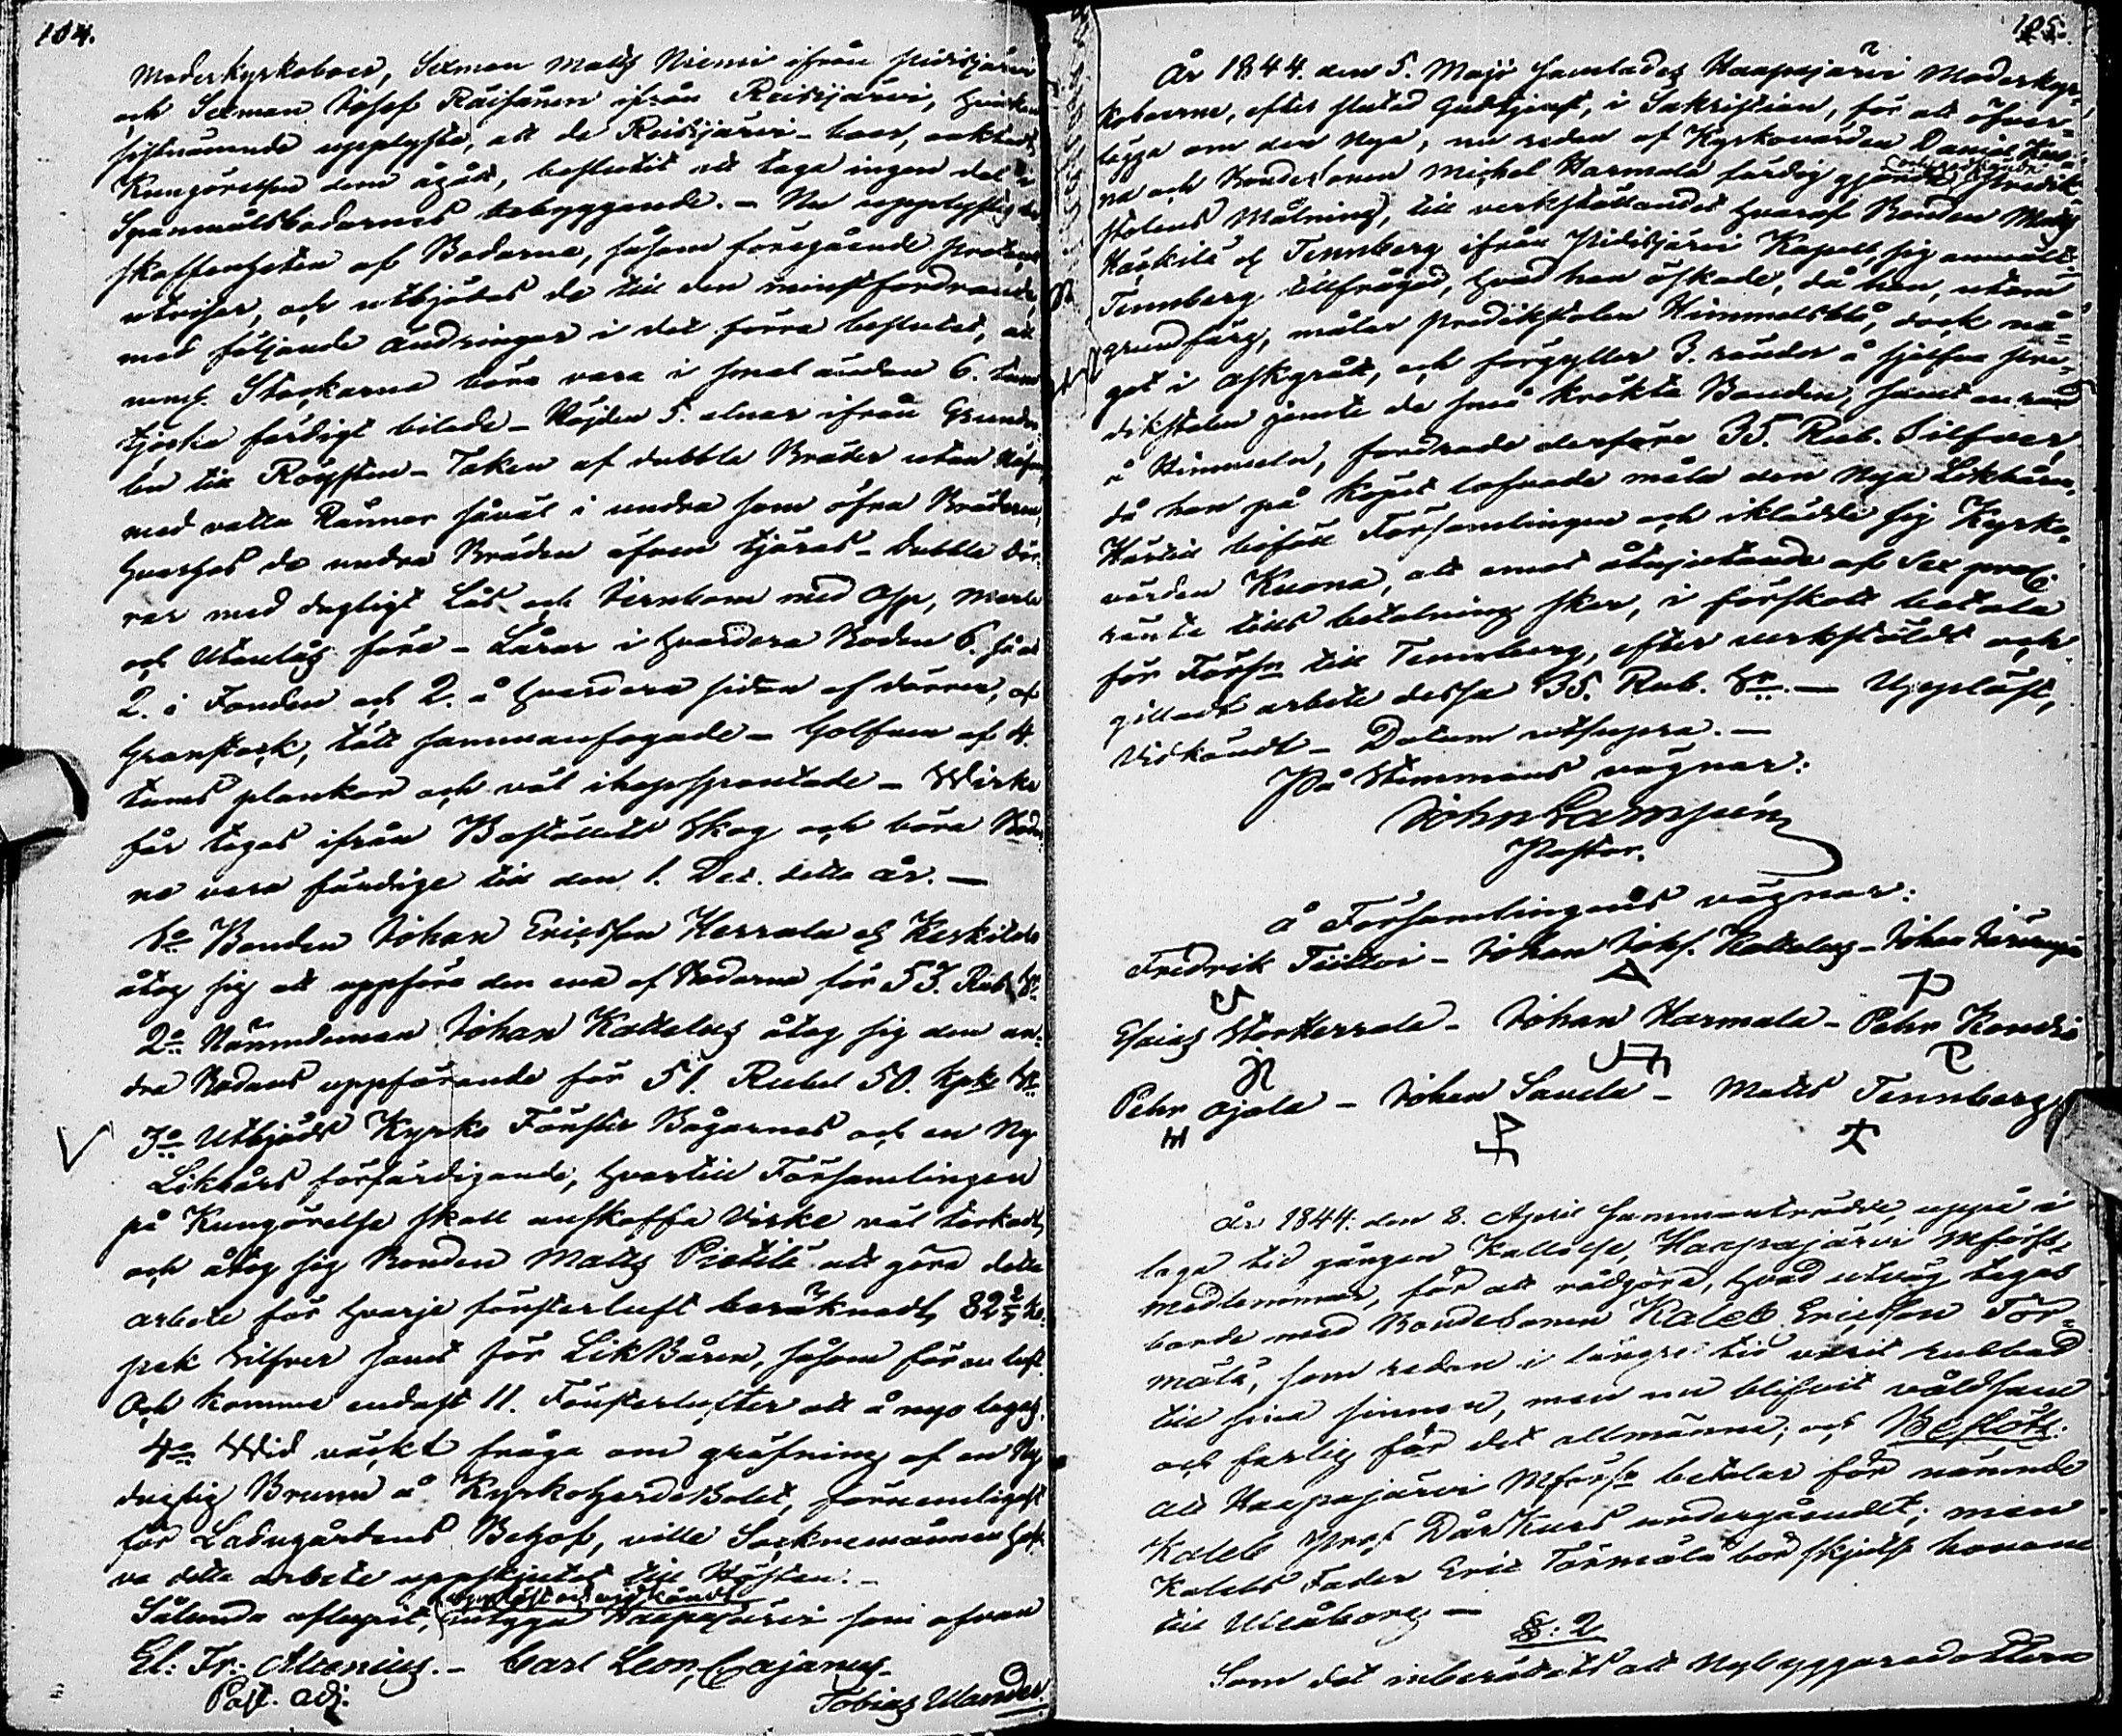 104.
Moderkyrkoboer, Sexman Matts Niemi ifrån Pidisjärvi
och Sexman Josef Räisänen ifrån Reisjärvi, hvilken
sistnämnde upplyste, att de Reisijärvi-boer, oaktadt
Kungörelsen derom ägdt, beslutit att taga ingen del i
Spanmålsbodarnes bebyggande. - Nu upplystes be-
skaffenheten af Bodarne, såsom föregående Protocol
utviser, och utbjödos de till den minstfordrande,
med följande ändringar i det förra beslutet, att
neml. Stockarna böra vara i smal ändan 6. tum
tjocka färdigt bilade - Höjden 5. alnar ifrån Grunden
till Röysten - Taken af dubbla Bräder utan
med valla Rännor såväl i undra som öfra Bräderne,
hvarjes de undra Bräden äfven tjäras - Dubbla Dör-
rar med dugligt Lås och Jernbom med Asp, Märla
och Utanlås före - Lårar i hvardera Boden 6. så at
2. i Fonden och 2. å hvardera sidan af dörren, af
Granstock, tätt sammanfogade - Golfven af 4.
tums plankor och väl ihopspontade - Wirke
får tagas ifrån Boställets Skog och böra Bodar-
ne vara färdige till den 1. Dec. detta år. —
1o Bonden Johan Ericsson Herrala eg Keskitalo
åtog sig att uppföra den ena af Bodarna för 53. Rub. Sr
2o Nämndeman Johan Kattelus åtog sig den an-
dra Bodans uppförande för 51. Rubel 50. kpk Sr
3o Utbjöds Kyrko Fönster Bågarnes och en Ny
Likbårs förfärdigande, hvartill Församlingen
på Kungörelse skall anskaffa Virke väl torkadt,
och åtog sig Bonden Matts Pietilä att göra detta
arbete för hvarje fönsterluft beräknadt, 82 2/7 Ko-
pek Silfver samt för LikBåren, såsom för en luft.
Och komme endast 11. Fönsterlufter att å nyo lagas.
4o Wid väckt fråga om gräfning af en Ny
dugtig Brunn å Kyrkoherde Bolet, förnemligast
för Ladugårdens Behof, ville Socknemännen haf-
va detta arbete uppskjutet till Hösten. -
Sålunda aflupit, upplöst och vidkändt intyga Haapajärvi som ofvan
El: Fr: Alcenius. - Carl Leon. Cajanus.
Past. adj.
Tobias Ulander.
105.
År 1844. den 5. Maji samlades Haapajärvi Moderkyr-
koboerne, efter slutad Gudstjenst, i Sakristian, för att öfver-
lägga om den Nya, nu redan af Kyrkovärden Daniel Kuo-
na och Bondesonen Michel Harmala färdig gjorda Predik-
stolens Målning, till verkställandet hvaraf Bonden Matts
Häckilä eg Tennberg ifrån Pidisjärvi Kapell, sig anmält.
Tennberg tillfrågad, hvad han äskade, då han, utom
grundfärg, målar Predikstolen Himmelsblå, dock nå-
got i askgrått, och förgyller 3. ränder å sjelfva Pre-
dikstolen jemte de små krökta Banden, samt en rand
å Himmeln, fordrade derföre 35. Rub. Silfver,
då han på köpet lofvade måla den Nya Likbåren,
Härtill biföll Församlingen och iklädde sig Kyrko-
värden Kuona, att emot åtnjutande af Sex proC.
ränta tills betalning sker, i förskott betala
för Församln till Tennberg, efter verkstäldt och
gilladt arbete dessa 35. Rub. Sr. — Uppläst,
Vidkändt - Datum utsupra. —
På Stämmans vägnar:
John Lampén
Pastor.
å Församlingens vägnar:
Fredrik Tiitto - Johan Johs. Kattelus - Johan
Esaias StorHerrala - Johan Harmala - Pehr Kendrö
Pehr Ojala - Johan Savela - Matts Tennberg
År 1844. den 8. April sammanträdde, uppå i
laga tid gången Kallelse, Haapajärvi Mförsl.
medlemmar, för att rådgöra, hvad utväg tagas
borde med Bondesonen Kaleb Ericsson Tör-
mälä, som redan i längre tid varit rubbad
till sina sinnen, men nu blifvit våldsam
och farlig för det allmänna; och Beslöts:
att Haapajärvi Mförsln betalar för nämnde
Kaleb Pros Dårkurs undergåendet; men
Kalebs Fader Eric Törmälä bör skjutsa honom
till Uleåborg —
§: 2
Som det inberättats att Nybyggaredottern